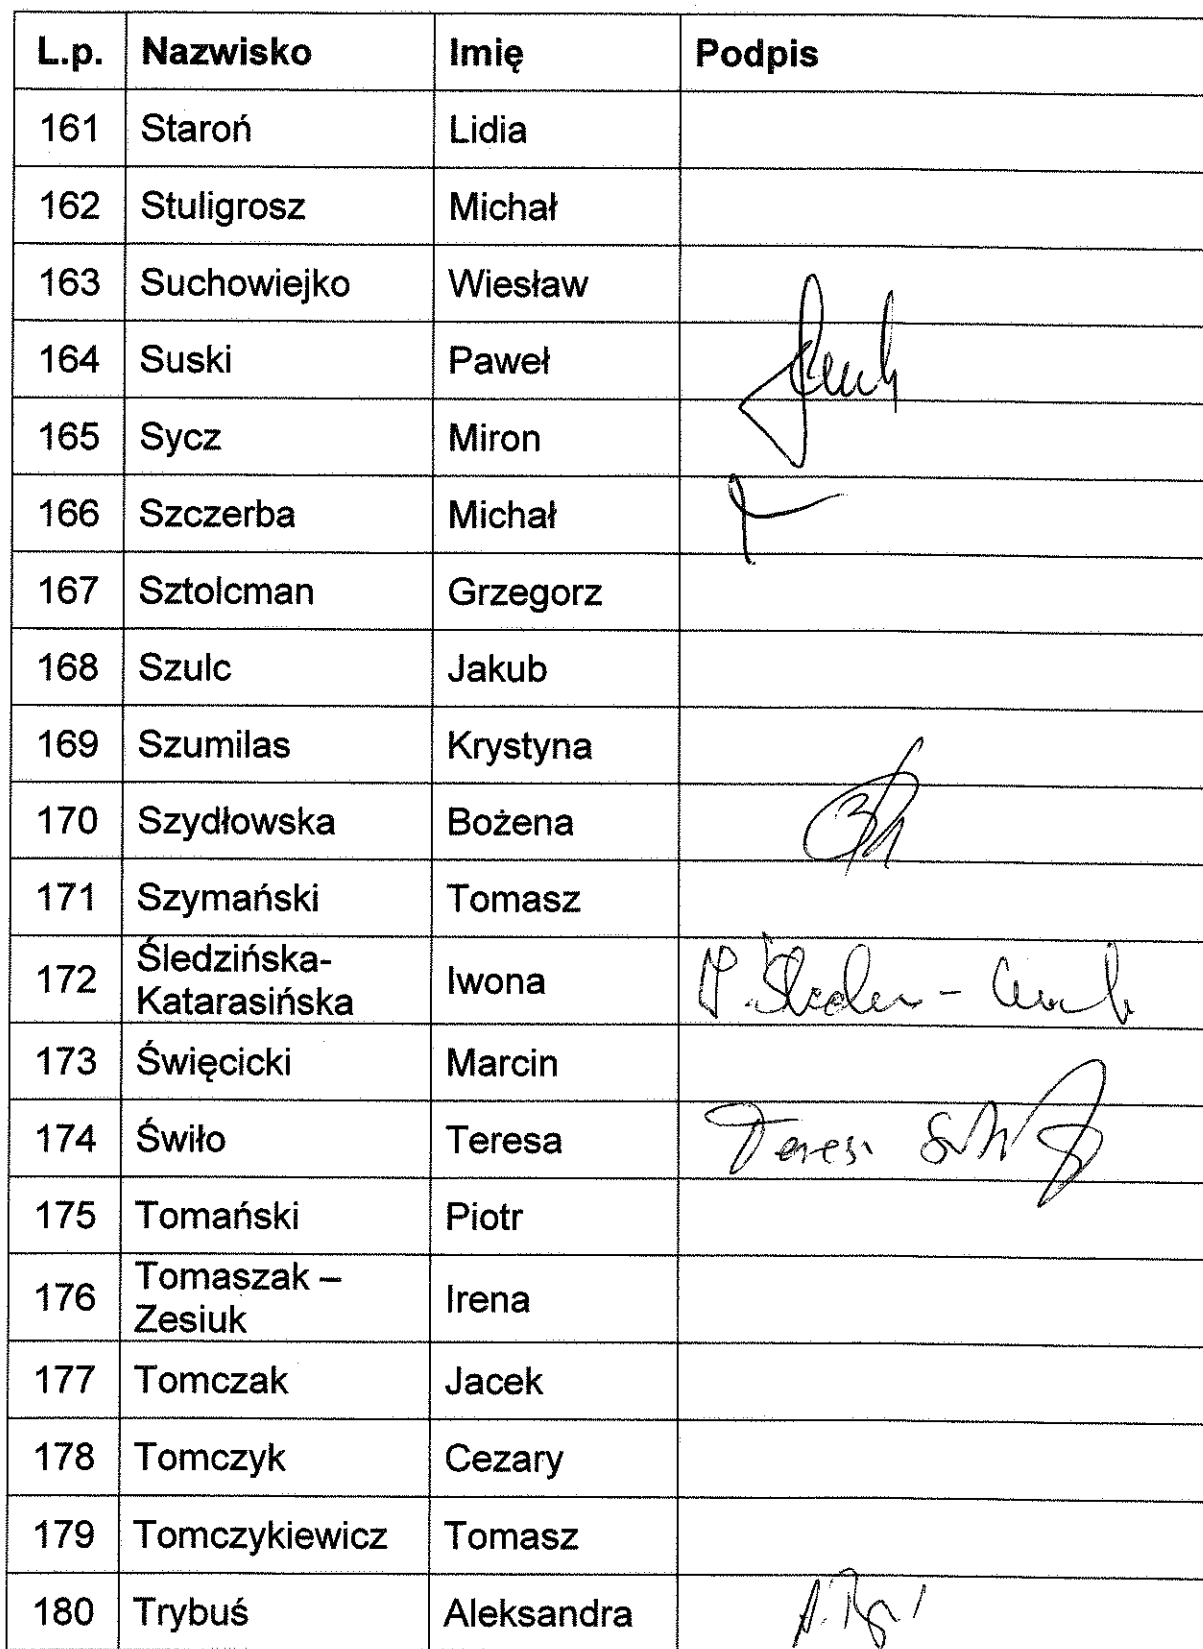 L.p. Nazwisko Imię Podpis
161 Staroń Lidia
162 Stuligrosz Michał
163 Suchowiejko Wiesław
164 Suski Paweł
165 Sycz Miron
166 Szczerba Michał
167 Sztolcman Grzegorz
168 Szulc Jakub
169 Szumilas Krystyna
170 Szydłowska Bożena
171 Szymański Tomasz
172 Śledzińska-
Katarasińska Iwona
173 Święcicki Marcin
174 Świło Teresa
175 Tomański Piotr
176 Tomaszak –
Zesiuk Irena
177 Tomczak Jacek
178 Tomczyk Cezary
179 Tomczykiewicz Tomasz
180 Trybuś Aleksandra